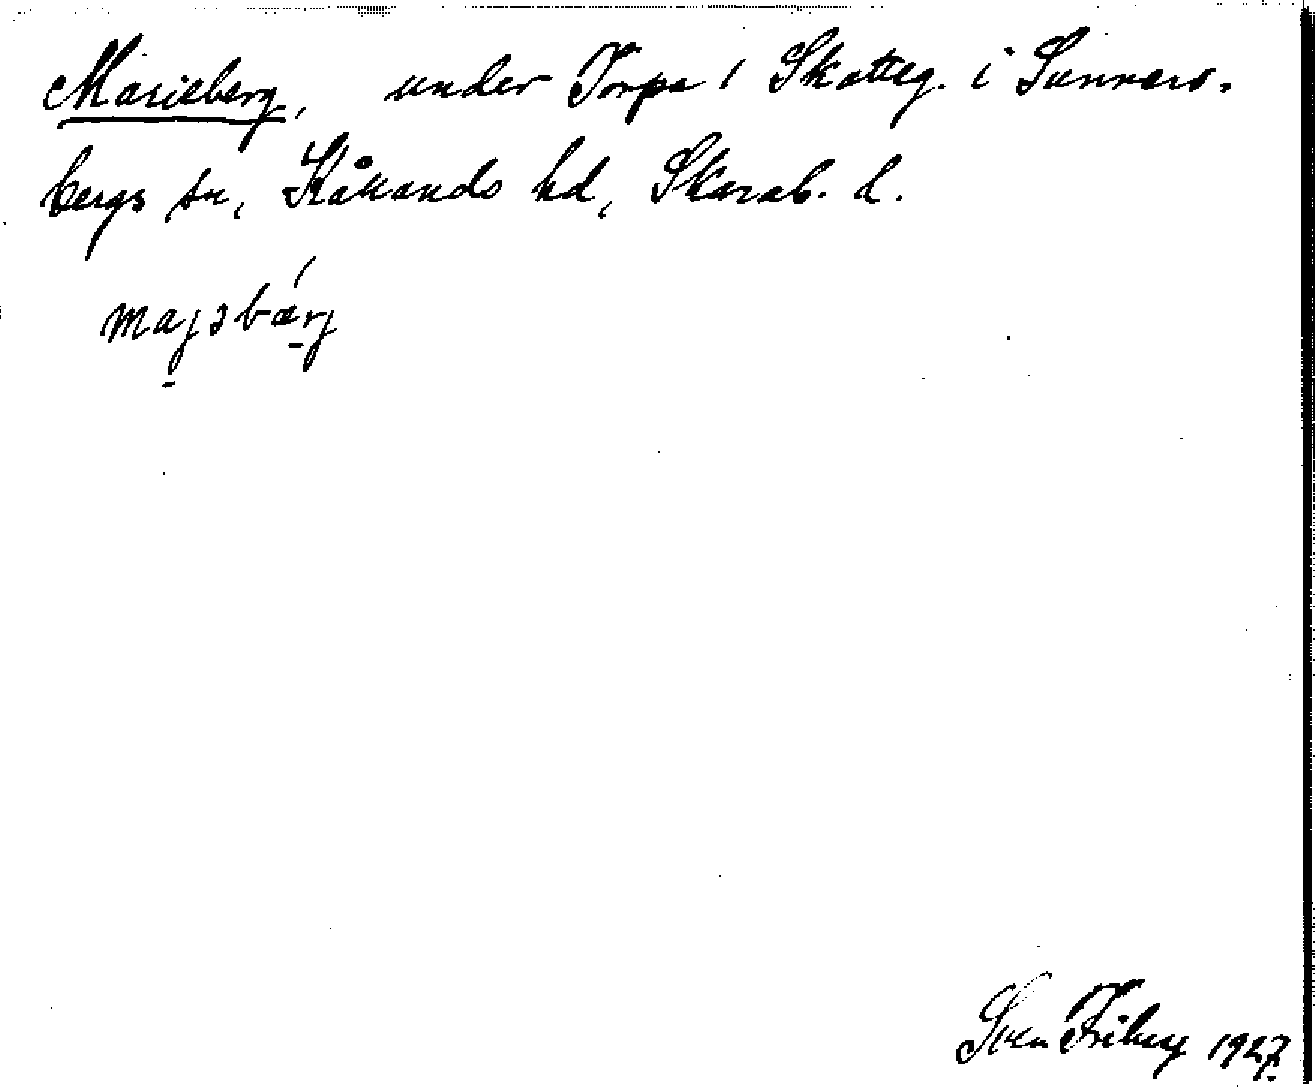 Marieberg, under Torpa 1 Skatteg. i Sunners-
bergs sn, Kållands hd, Skarab. l.
majsbǽrj
Sven Friberg 1927.